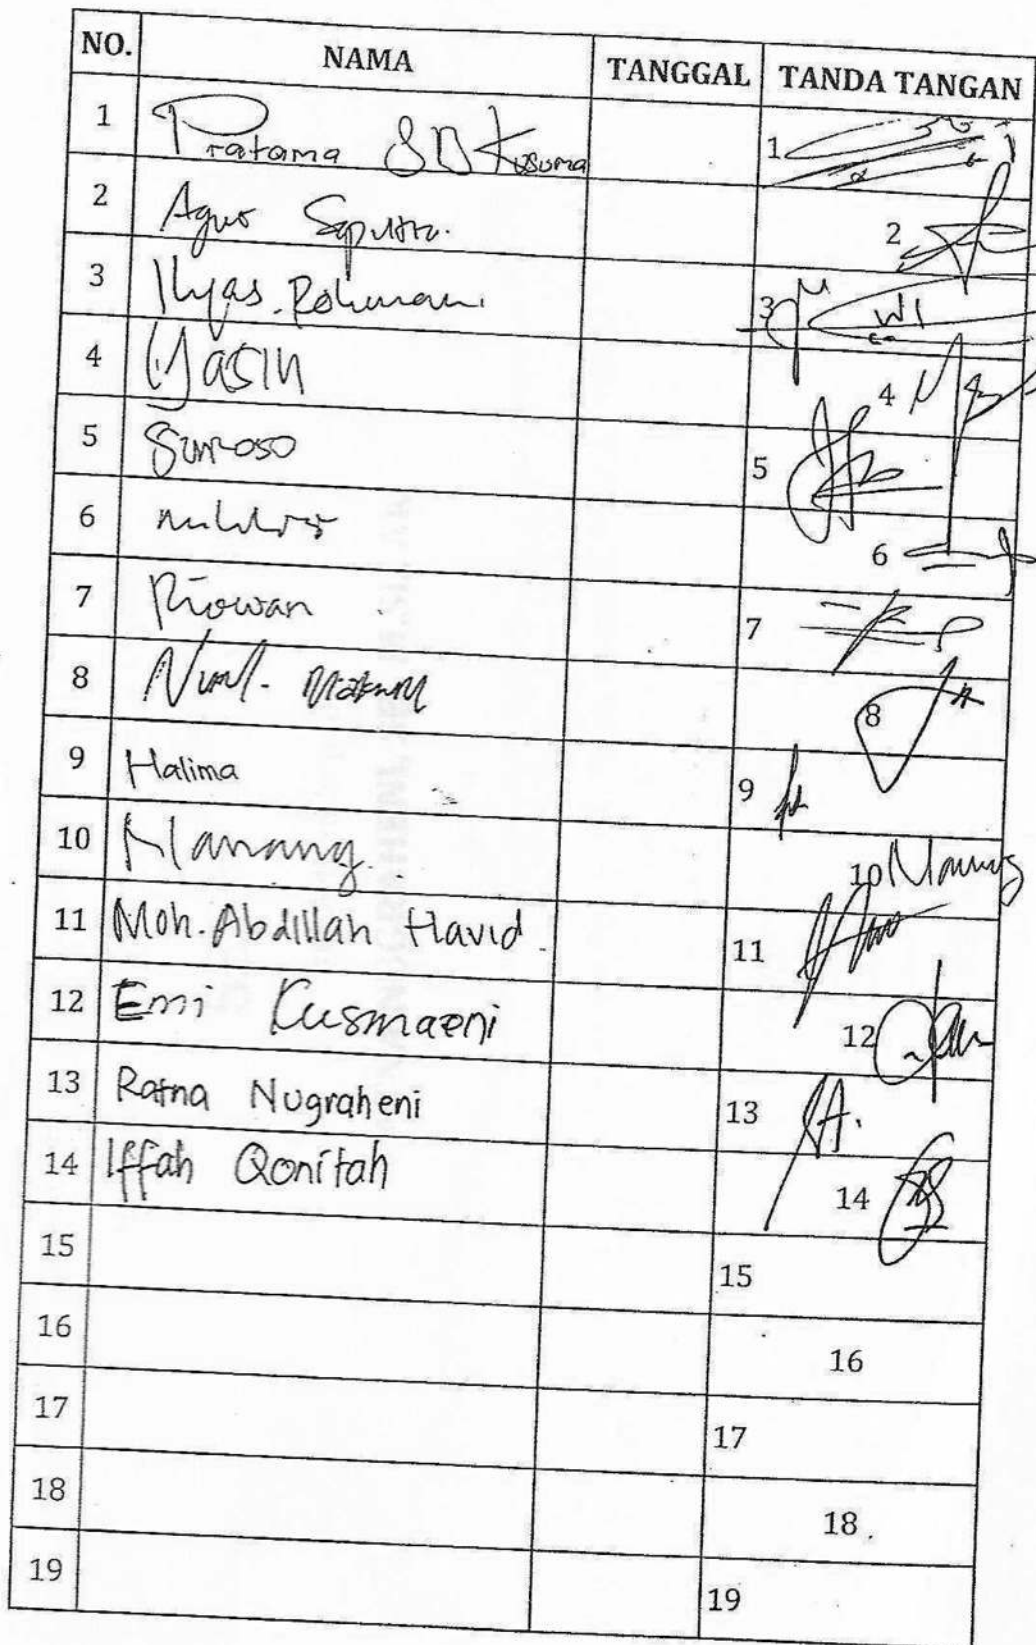 NO. NAMA TANGGAL TANDA TANGAN
1 Pratama SD Kusuma 1
2 Agus Saputra. 2
3 Ilyas. Rohman. 3
4 Yasin 4
5 Suroso 5
6 6
7 Riowan 7
8 Nurul. 8
9 Halima 9
10 Nanang. 10 Nanang
11 Moh. Abdillah Havid 11
12 Emi Kusmaeni 12
13 Ratna Nugraheni 13
14 Iffah Qonitah 14
15 15
16 16
17 17
18 18
19 19